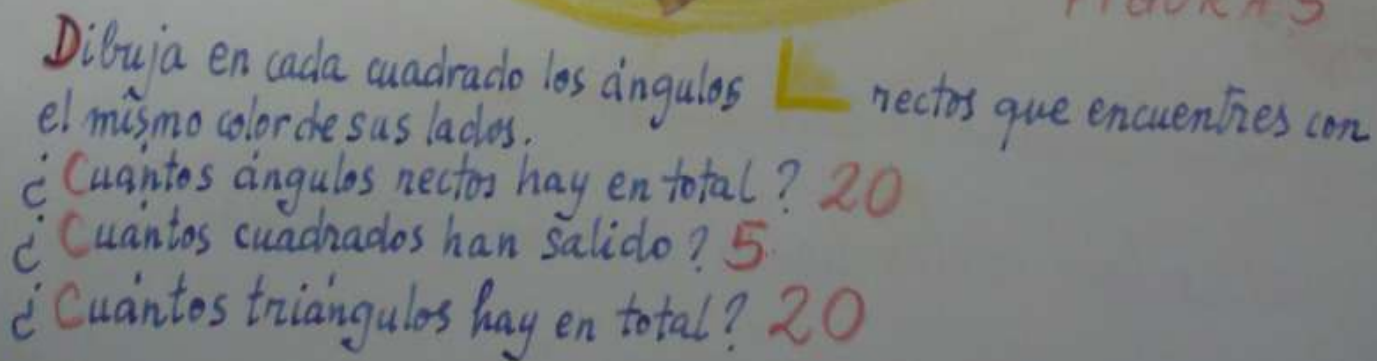 FIGURAS
Dibuja en cada cuadrado los ángulos rectos que encuentres con
el mismo color de sus lados.
¿Cuántos ángulos rectos hay en total? 20
¿Cuántos cuadrados han salido? 5
¿Cuántos triángulos hay en total? 20